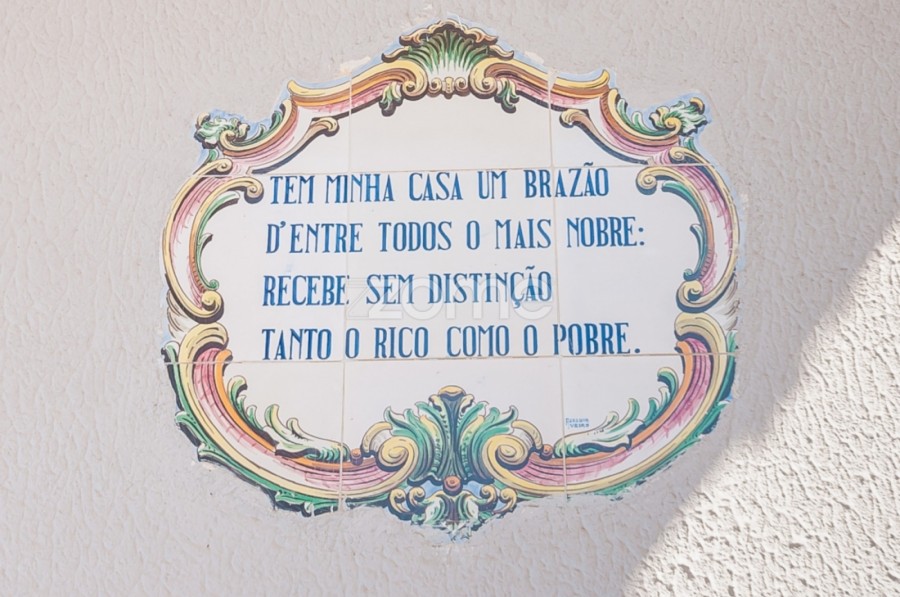 TEM MINHA CASA UM BRAZÃO
D'ENTRE TODOS O MAIS NOBRE:
RECEBE SEM DISTINÇÃO
TANTO O RICO COMO O POBRE.